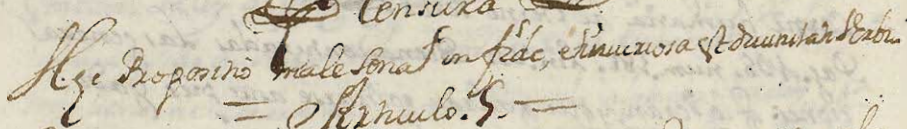 Censura
Hęc Propositio male sonat in fide, et iniuriosa est diuinitati Verbi.
= Articulo. 5. =